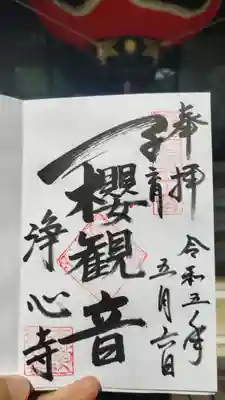 奉拝
令和五年
五月六日
子育
櫻観音
浄心寺